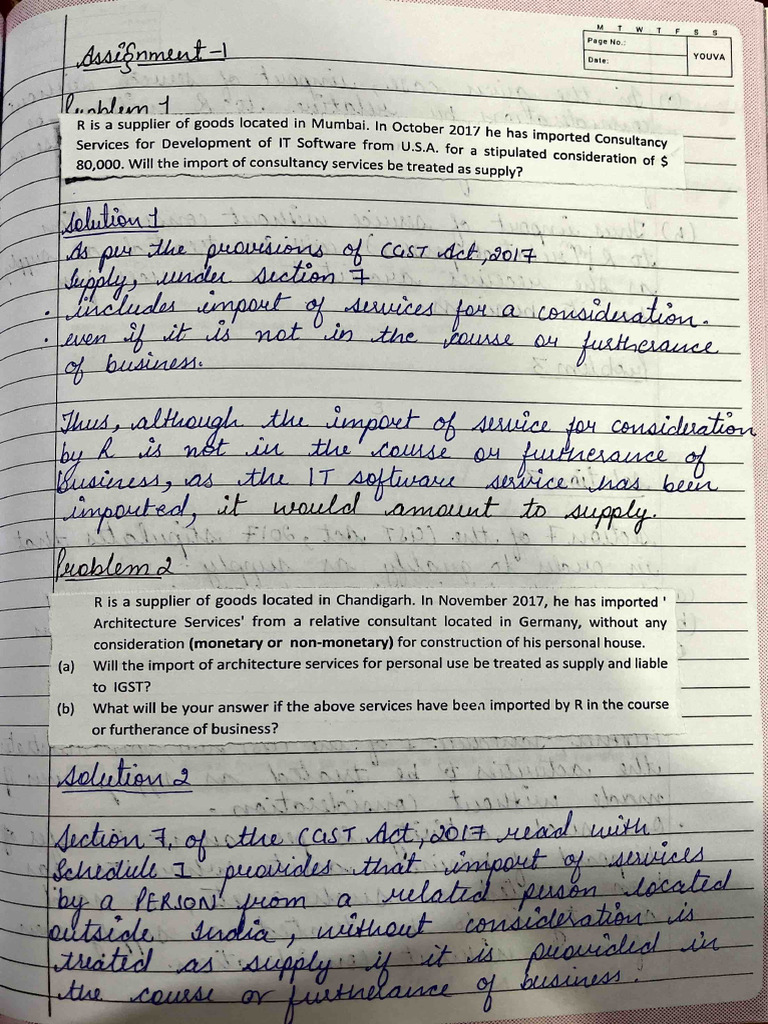 M T W T F S S
Page No.:
Date:
YOUVA
Assignment-1
Problem 1
R is a supplier of goods located in Mumbai. In October 2017 he has imported Consultancy
Services for Development of IT Software from U.S.A. for a stipulated consideration of $
80,000. Will the import of consultancy services be treated as supply?
Solution 1
As per the provisions of CGST Act, 2017
Supply, under section 7
• includes import of services for a consideration.
• even if it is not in the course or furtherance
of business.
Thus, although the import of service for consideration
by R is not in the course or furtherance of
business, as the IT software service has been
imported, it would amount to supply.
Problem 2
R is a supplier of goods located in Chandigarh. In November 2017, he has imported '
Architecture Services' from a relative consultant located in Germany, without any
consideration (monetary or non-monetary) for construction of his personal house.
(a) Will the import of architecture services for personal use be treated as supply and liable
to IGST?
(b) What will be your answer if the above services have been imported by R in the course
or furtherance of business?
Solution 2
Section 7, of the CGST Act, 2017 read with
Schedule I provides that import of services
by a 'PERSON' from a related person located
outside India, without consideration is
treated as supply if it is provided in
the course or furtherance of business.